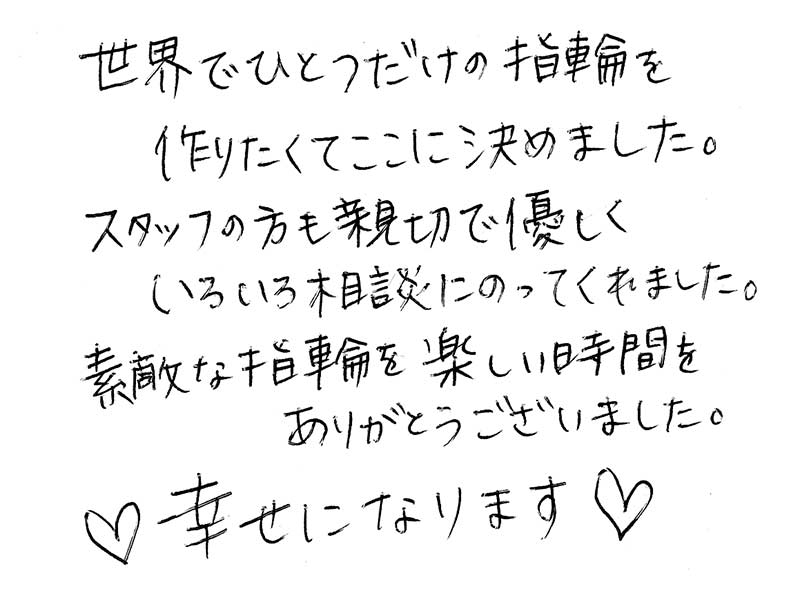 世界でひとつだけの指輪を
作りたくてここに決めました。
スタッフの方も親切で優しく
いろいろ相談にのってくれました。
素敵な指輪を楽しい時間を
ありがとうございました。
♡幸せになります♡